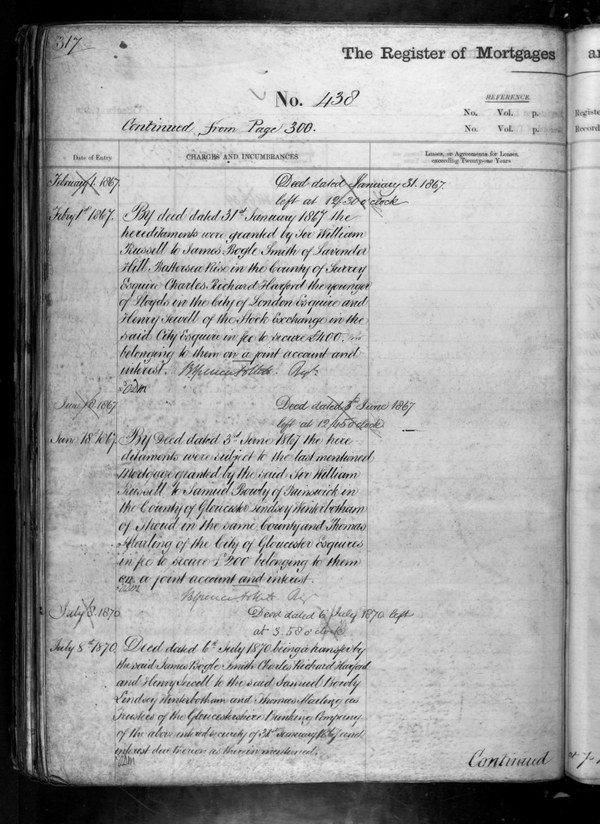 317
The Register of Mortgages
No. 438
REFERENCE.
No. Vol. p.
Continued from Page 300.
No. Vol. p.
Date of Entry
CHARGES AND INCUMBRANCES
Leases, or Agreements for Leases,
exceeding Twenty-one Years
February 1. 1867.
Deed dated January 31. 1867.
left at 12/30 o'clock
Feby 1st 1867.
By deed dated 31st January 1867 the
hereditaments were granted by Sir William
Russell to James Bogle Smith of Lavender
Hill Battersea Rise in the County of Surrey
Esquire Charles Richard Harford the younger
of Lloyds in the City of London Esquire and
Henry Sewell of the Stock Exchange in the
said City Esquire in fee to secure £400.
belonging to them on a joint account and
interest.
June 18 1867
Deed dated 3d June 1867
left at 12/45 o'clock
June 18 1867
By Deed dated 3d June 1867 the here
ditaments were subject to the last mentioned
Mortgage granted by the said Sir William
Russell to Samuel Bowly of Brunswick in
the County of Gloucester Lindsey Winterbotham
of Stroud in the same County and Thomas
Marling of the City of Gloucester Esquires
in fee to secure £200 belonging to them
on a joint account and interest.
July 8. 1870
Deed dated 6 July 1870 left
at 3.58 o'clock
July 8th 1870
Deed dated 6th July 1870 being a transfer by
the said James Bogle Smith Charles Richard Harford
and Henry Sewell to the said Samuel Bowly
Lindsey Winterbotham and Thomas Marling as
Trustees of the Gloucestershire Banking Company
of the above entered security of 31st January 1867 and
interest due thereon as therein mentioned.
Continued